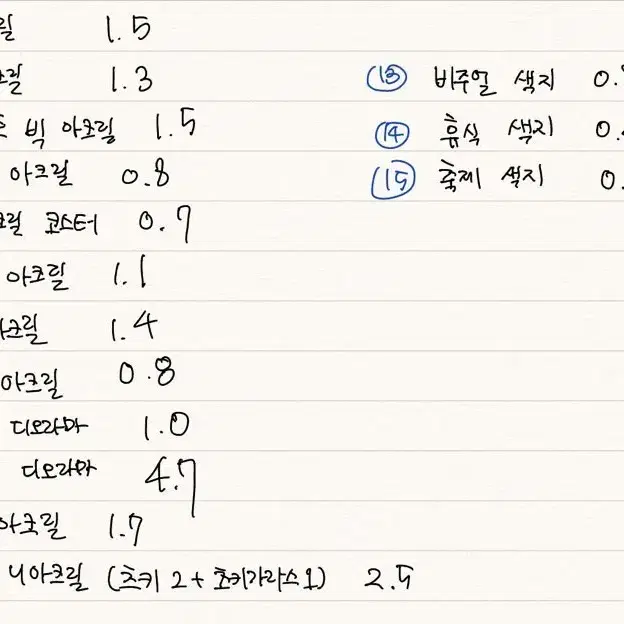 릴 1.5
크릴 1.3
빅 아크릴 1.5
아크릴 0.8
크릴 코스터 0.7
아크릴 1.1
아크릴 1.4
아크릴 0.8
디오라마 1.0
디오라마 4.7
아크릴 1.7
니아크릴 (츠키 2 + 츠키가라스 1) 2.5
⑬ 비주얼 색지 0.
⑭ 휴식 색지 0.
⑮ 축제 색지 0.